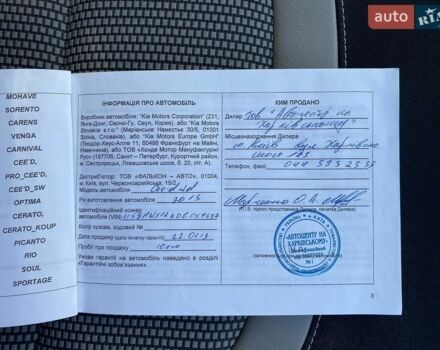 auto RIA
MOHAVE
SORENTO
CARENS
VENGA
CARNIVAL
CEE'D,
PRO_CEE'D,
CEE'D_SW
OPTIMA
CERATO,
CERATO_KOUP
PICANTO
RIO
SOUL
SPORTAGE
ІНФОРМАЦІЯ ПРО АВТОМОБІЛЬ
Виробник автомобіля: "Kia Motors Corporation" (231,
Янгє-Донг, Сеочо-Гу, Сеул, Корея), або "Kia Motors
Slovakia s.r.o." (Маріанське Намєстьє 30/5, 01001
Зіліна, Словакія), або "Kia Motors Europe GmbH"
(Теодор-Хеус-Аллеє 11, 60486 Франкфурт на Майні,
Німеччина), або ТОВ «Хенде Мотор Мануфактуринг
Рус» (197706, Санкт – Петербург, Курортний район,
м Сестрорецк, Левашовське шосе, б. 20, літ. А).
Дистриб'ютор: ТОВ «ФАЛЬКОН – АВТО», 01004,
м. Київ, вул. Червоноармійська, 15/2
Модель автомобіля Cee'd
Рік виготовлення автомобіля 2013
Ідентифікаційний номер
автомобіля (VIN)
Колір кузова, кодовий №
Дата продажу (дата початку гарантії) 22.01.13
Пробіг при продажу 10 км
Умови гарантії на автомобіль наведено в розділі
«Гарантійні зобов'язання».
КИМ ПРОДАНО
Дилер ТОВ "Автоцентр на
Харківському"
Місцезнаходження Дилера
м. Київ вул. Харківське
шосе
Телефон, факс 044 593 2233
Марченко О.А.
(П.І.Б, підпис представника Дилера, печатка Дилера)
УКРАЇНА м. КИЇВ
«АВТОЦЕНТР НА
ХАРКІВСЬКОМУ»
3